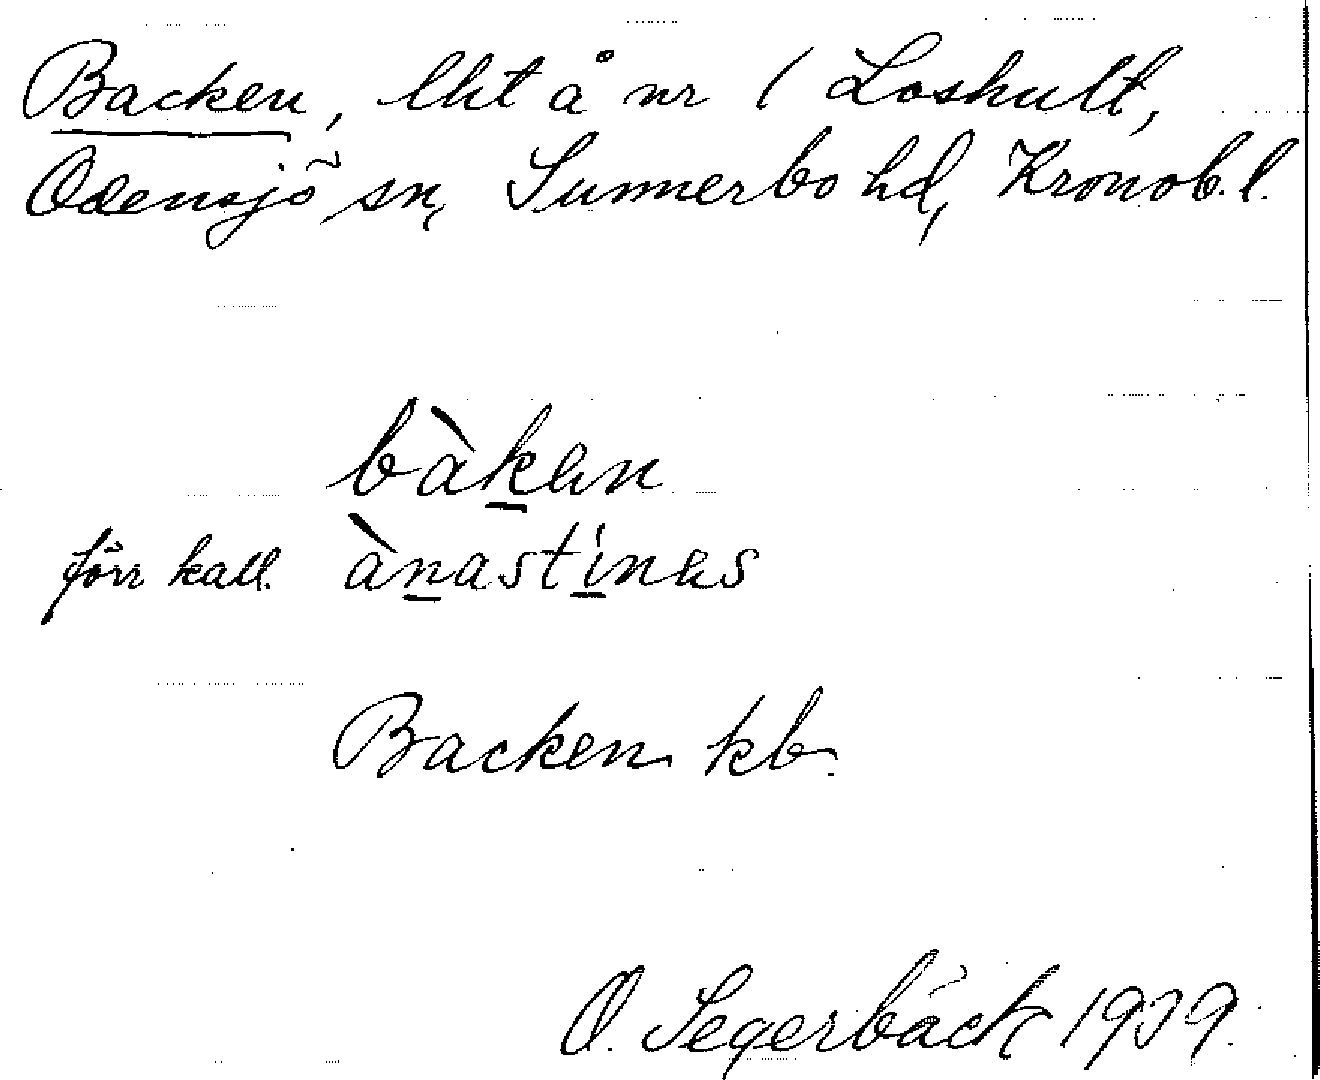 Backen, lht å nr 1 Loshult,
Odensjö sn, Sunnerbo hd, Kronob. l.
bàkan
förr kall. ànastinas
Backen kb.
O. Segerbäck 1939.